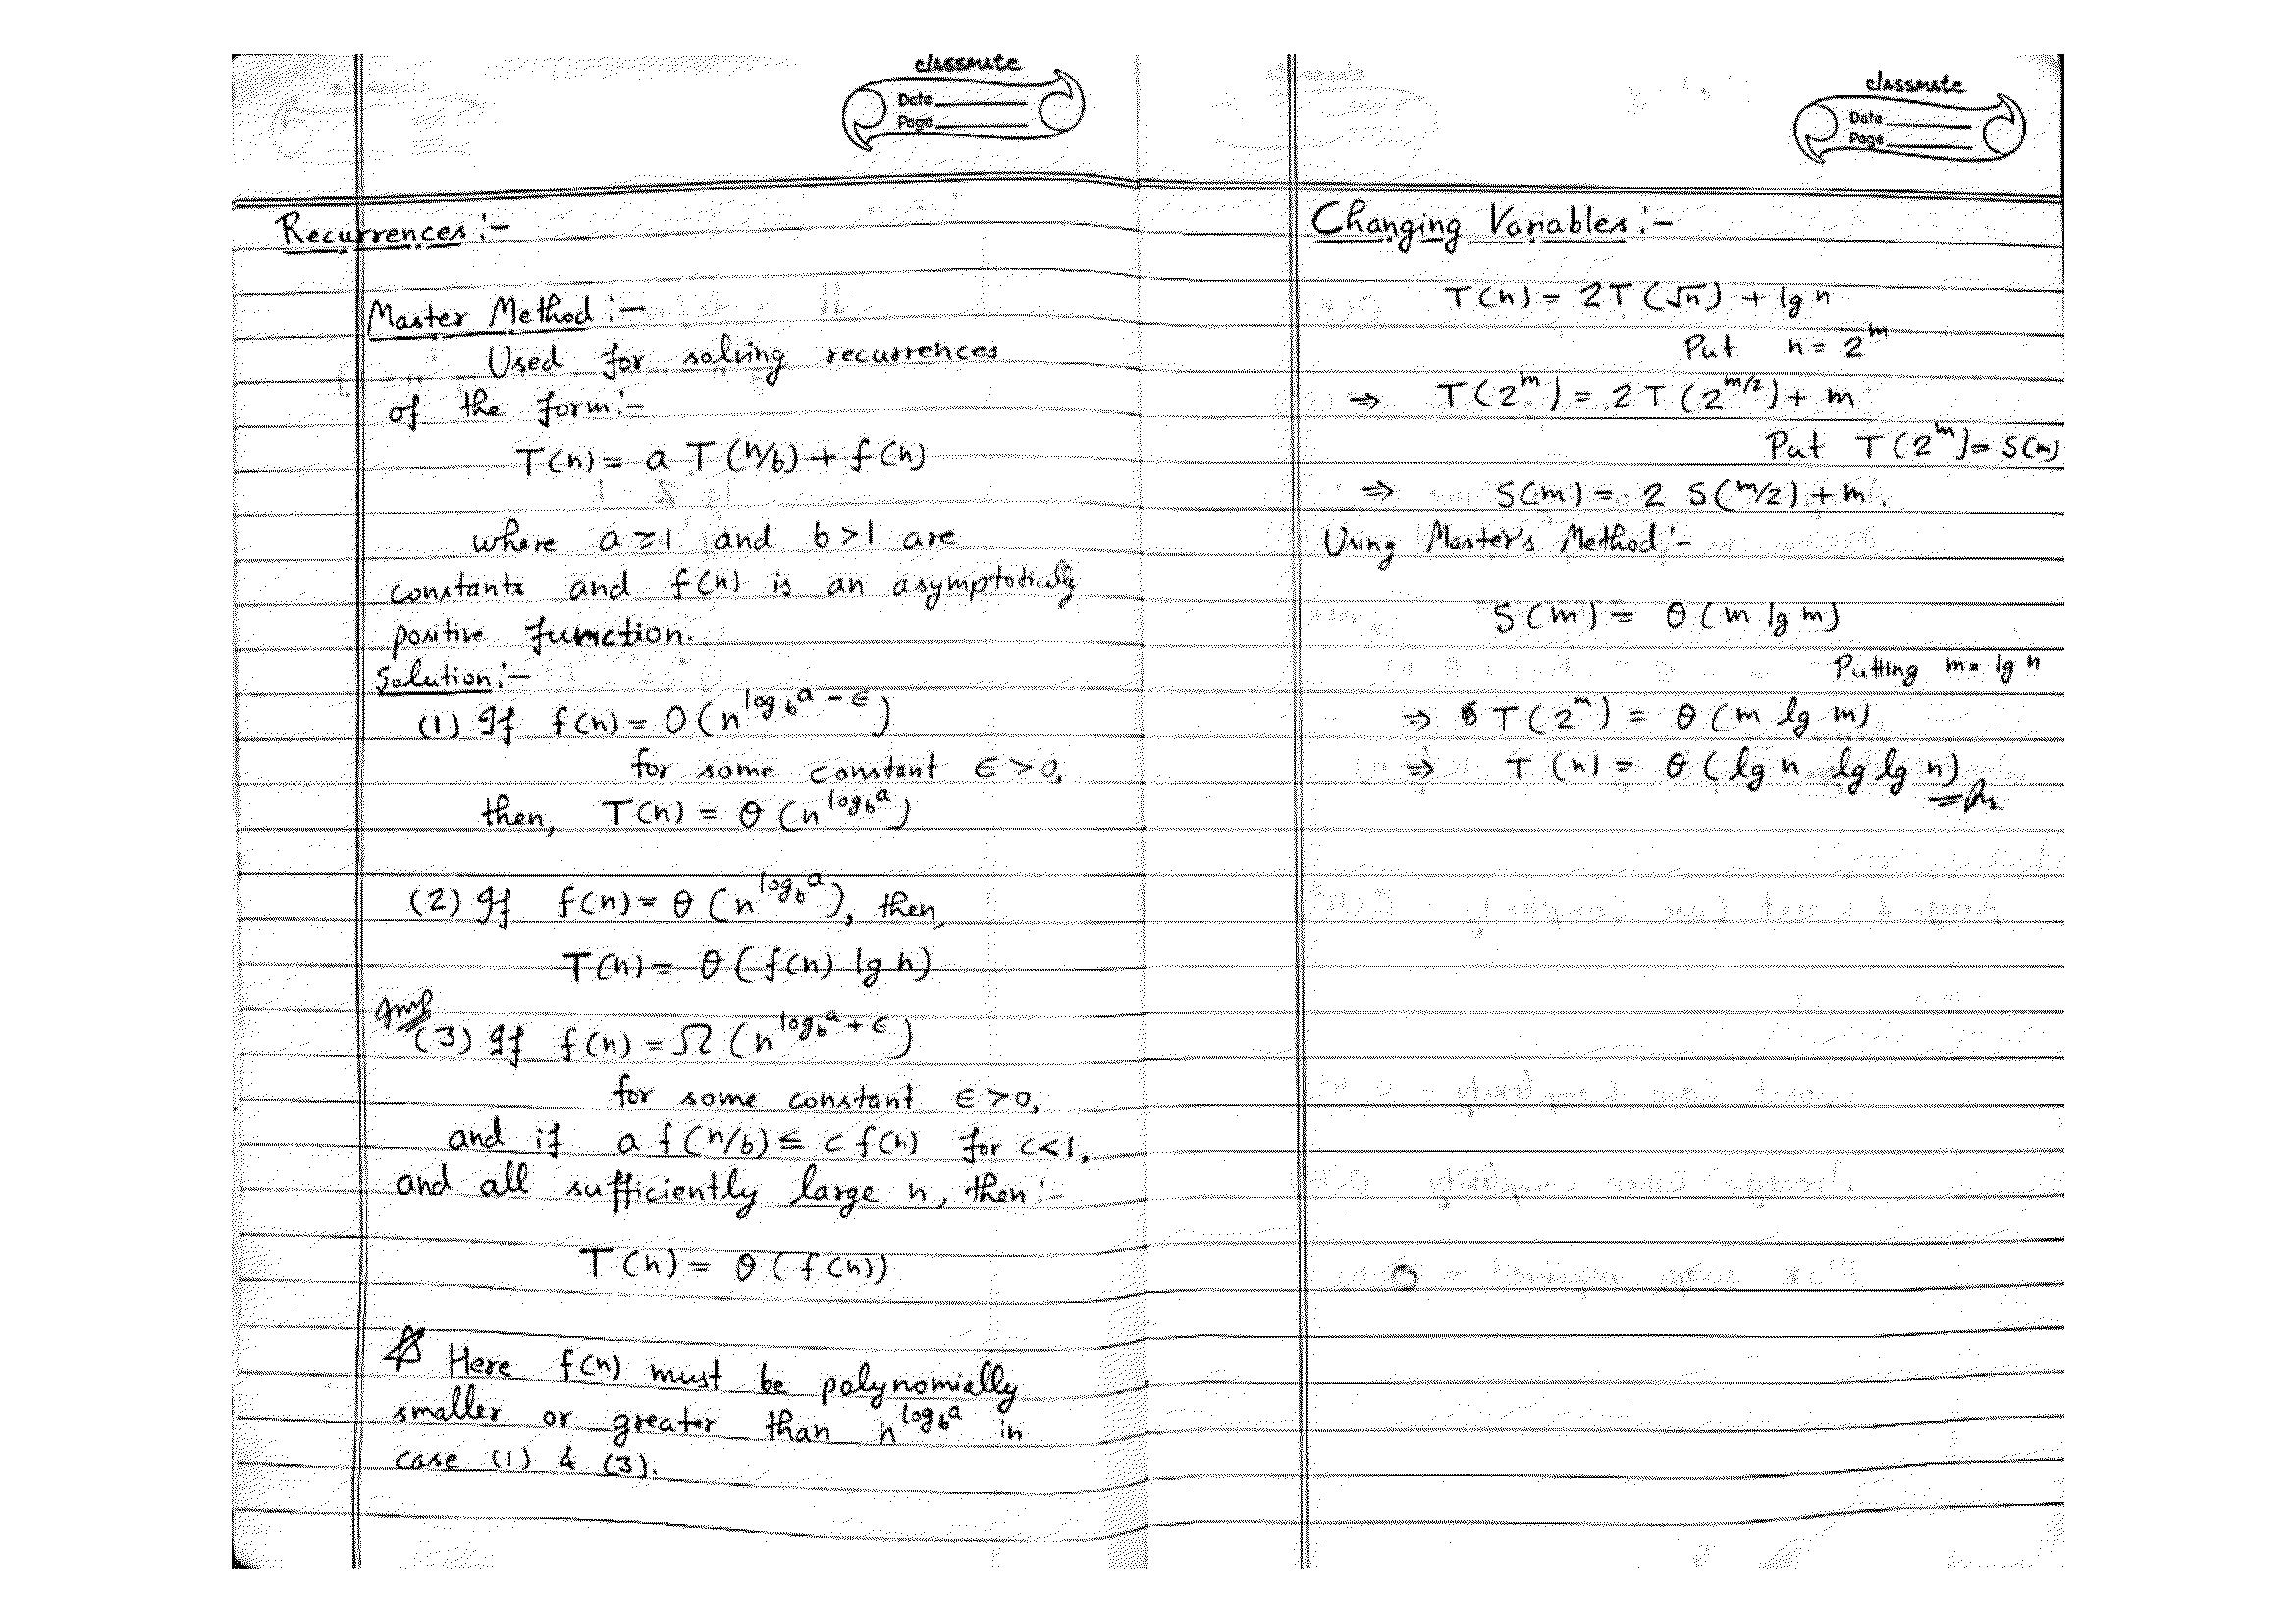 classmate
Date
Page
Recurrences :-
Master Method :-
Used for solving recurrences
of the form :-
T(n) = a T(n/b) + f(n)
where a ≥ 1 and b > 1 are
constants and f(n) is an asymptotically
positive function.
Solution :-
(1) If f(n) = O(n^{log_b a - ε})
for some constant ε > 0,
then, T(n) = θ(n^{log_b a})
(2) If f(n) = θ(n^{log_b a}), then,
T(n) = θ(f(n) lg n)
Imp
(3) If f(n) = Ω(n^{log_b a + ε})
for some constant ε > 0,
and if a f(n/b) ≤ c f(n) for c < 1,
and all sufficiently large n, then :-
T(n) = θ(f(n))
Here f(n) must be polynomially
smaller or greater than n^{log_b a} in
case (1) & (3).
classmate
Date
Page
Changing Variables :-
T(n) = 2T(√n) + lg n
Put n = 2^m
⇒ T(2^m) = 2T(2^{m/2}) + m
Put T(2^m) = S(m)
⇒ S(m) = 2 S(m/2) + m.
Using Master's Method :-
S(m) = θ(m lg m)
Putting m = lg n
⇒ T(2^m) = θ(m lg m)
⇒ T(n) = θ(lg n lg lg n)